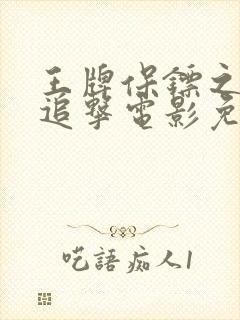 王牌保镖之
追撃电影免
呓語痴人1